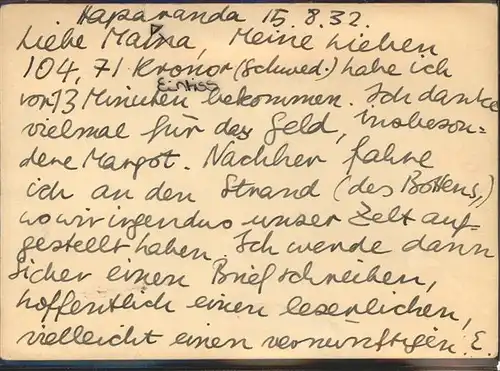 Haparanda 15.8.32.
Liebe Mama, Meine Lieben
104,71 Kronor (Schwed.) habe ich
vor 13 Minuten bekommen. Ich danke
vielmal für das Geld, insbeson=
dere Margot. Nachher fahre
ich an den Strand (des Bottens.,)
wo wir irgendwo unser Zelt auf-
gestellt haben. Ich werde dann
sicher einen Brief schreiben,
hoffentlich einen leserlichen,
vielleicht einen vernünftigen. E.